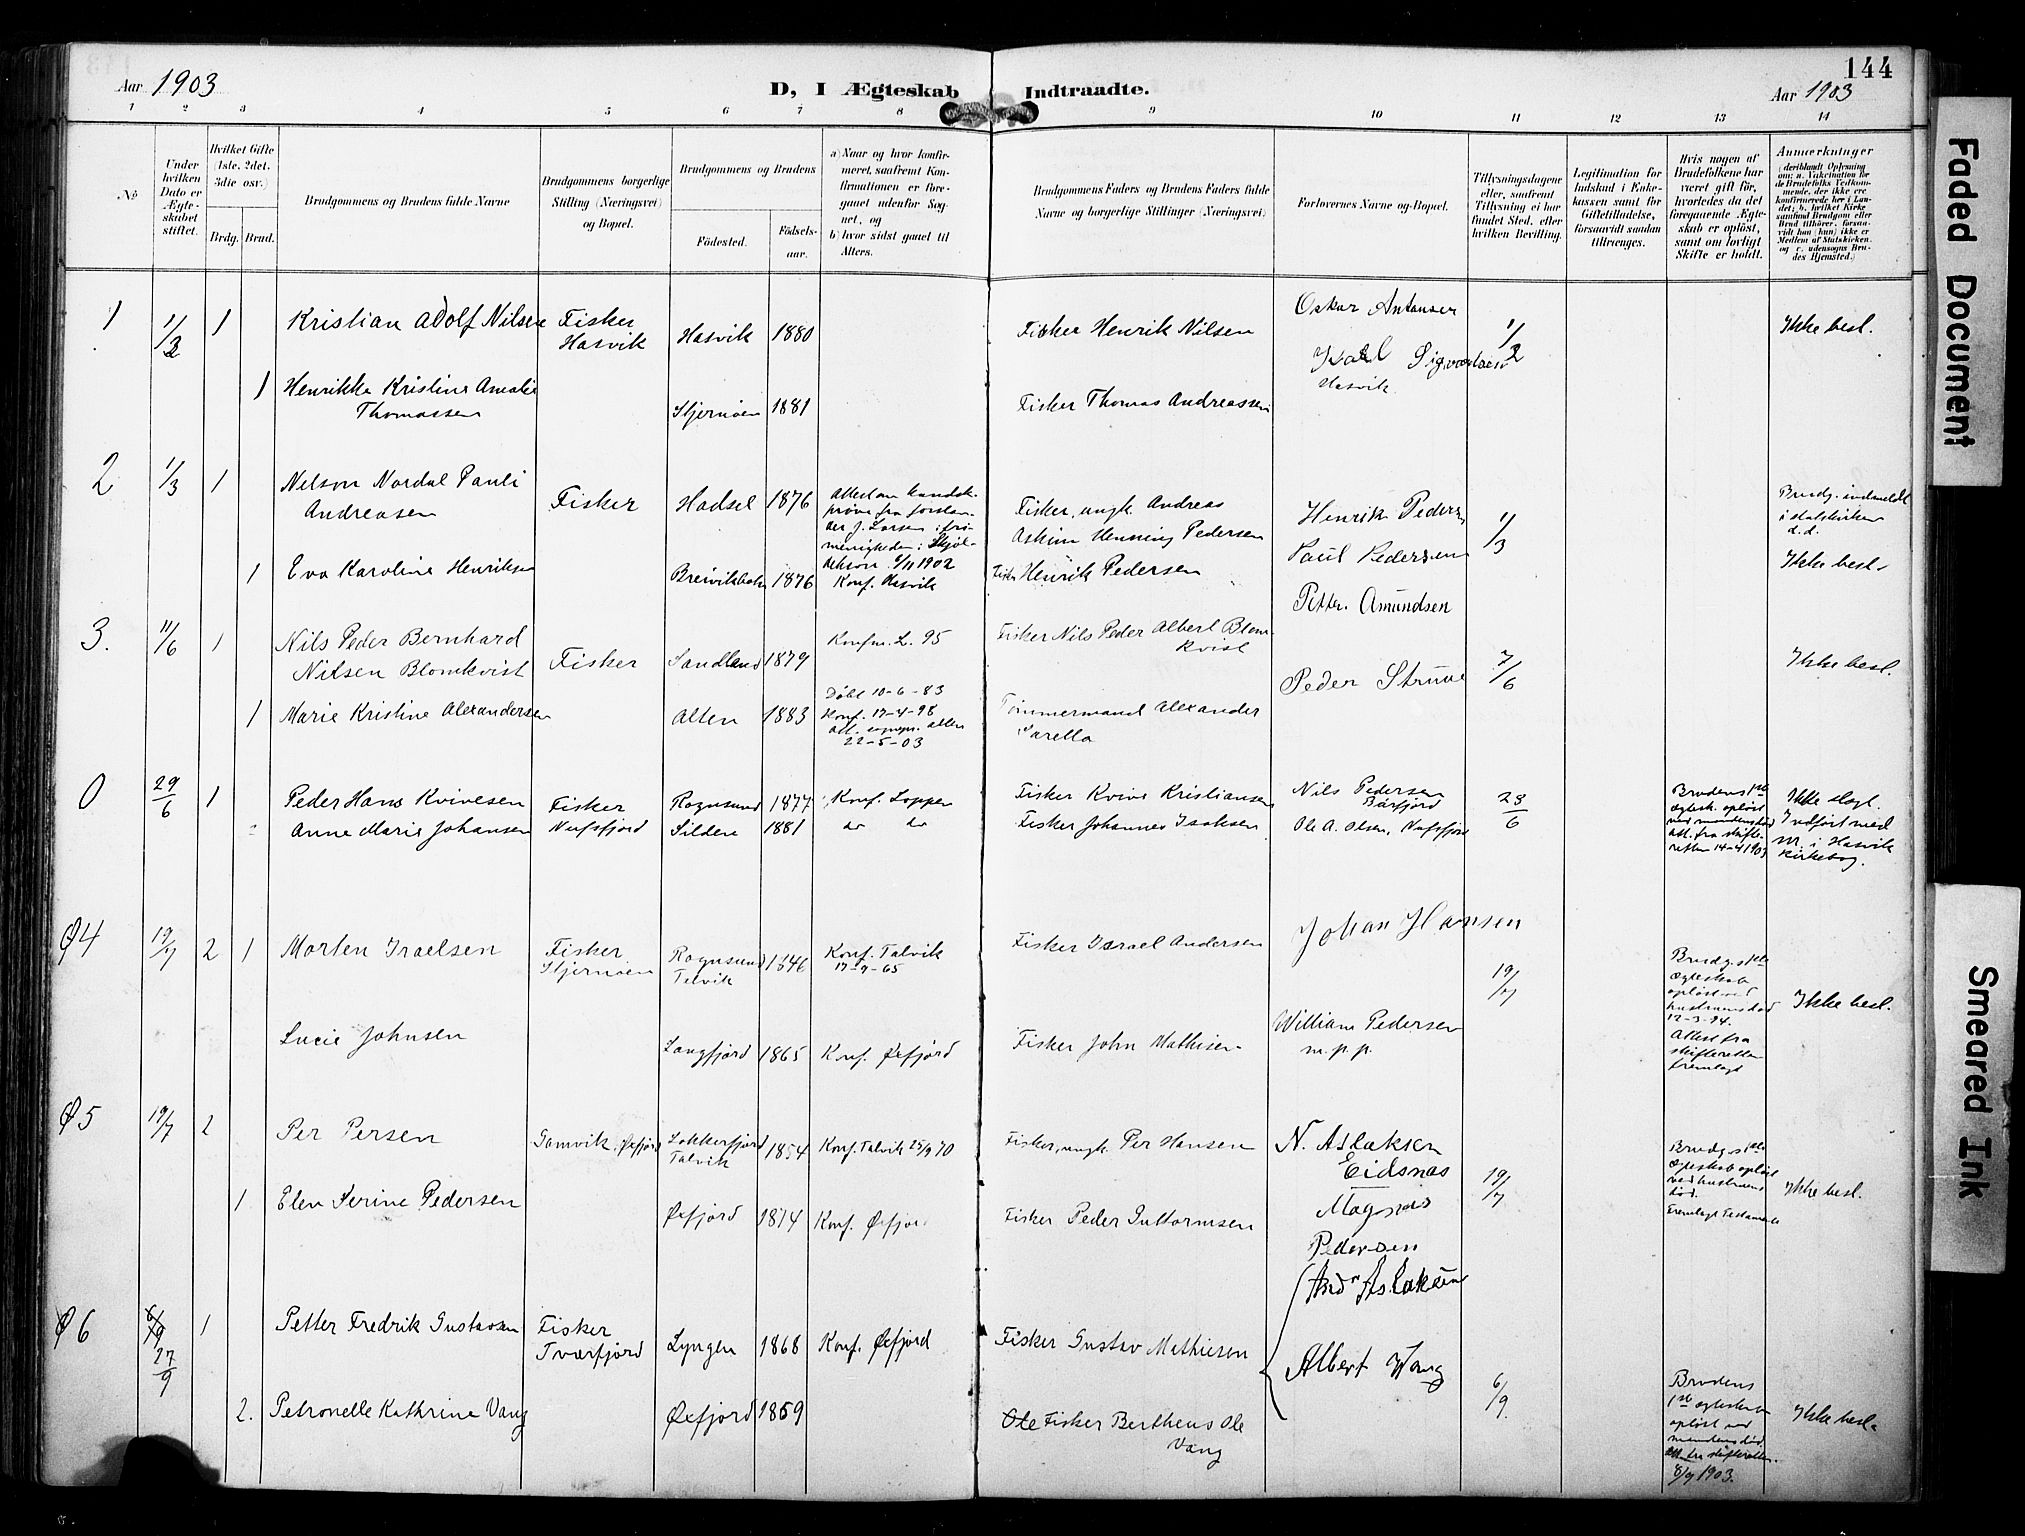 144
Aar 1903
D, I Ægteskab Indtraadte.
Aar 1903
1 2 3 4 5 6 7 8 9 10 11 12 13 14
No
Under hvilken Dato er Ægteskabet stiftet.
Hvilket Gifte (1ste, 2det, 3die osv.)
Brdg. Brud.
Brudgommens og Brudens fulde Navne
Brudgommens borgerlige Stilling (Næringsvei) og Bopæl.
Brudgommens og Brudens
Fødested.
Fødselsaar.
a) Naar og hvor konfirmeret, saafremt Konfirmationen er foregaaet udenfor Sognet, og
b) hvor sidst gaaet til Alters.
Brudgommens Faders og Brudens Faders fulde Navne og borgerlige Stillinger (Næringsvei)
Forlovernes Navne og Bopæl.
Tillysningsdagene eller, saafremt Tillysning ei har fundet Sted, efter hvilken Bevilling.
Legitimation for Indskud i Enkekassen samt for Giftetilladelse, forsaavidt saadan tiltrænges.
Hvis nogen af Brudefolkene har været gift før, hvorledes da det foregaaende Ægteskab er opløst, samt om lovligt Skifte er holdt.
Anmærkninger
(deriblandt Oplysning om: a. Vakcination for de Brudefolks Vedkommende, der ikke ere konfirmerede her i Landet; b. hvilket Kirkesamfund Brudgom eller Brud tilhører, forsaavidt han (hun) ikke er Medlem af Statskirken, og c. udensogns Brudes Hjemsted.)
1 1/3 1 Kristian Adolf Nilsen Fisker Hasvik Hasvik 1880 Fisker Henrik Nilsen Oskar Antonsen 1/2 Ikke besl.
Hasvik
1 Henrikke Kristine Amalie Thomassen Stjernøen 1881 Fisker Thomas Andreassen
2 1/3 1 Nelson Nordal Pauli Andreasen Fisker Hadsel 1876 Fisker, ungk. Andreas Askim Henning Pedersen Henrik Pedersen 1/3 Brudg. indmeldt i statskirken d.d.
Paul Pedersen
1 Eva Karoline Henriksen 1876 Konf. Hasvik Fisker Henrik Pedersen Ikke besl.
Petter Amundsen
3. 11/6 1 Nils Peder Bernhard Nilsen Blomkvist Fisker Sandland 1879 Konfm. L. 95 Fisker Nils Peder Albert Blomkvist 7/6 Ikke besl.
Peder Struve
1 Marie Kristine Alexandersen Alten 1883 Døbt 10-6-83 Konf. 17-4-98 att. sognepr. Alten 22-5-03 Tømmermand Alexander Sarella
0 29/6 1 Peder Hans Kvivesen Fisker Nufsfjord Rognsund 1877 Konf. Loppen Fisker Kvive Kristiansen Nils Pedersen Bårfjord 28/6 Brudens 1ste ægtesk. opløst ved mandens død att. fra skifteretten 14-4 1903 Ikke slegt. Indført med nr. i Hasvik kirkebog.
Anne Marie Johansen Silden 1881 do do Fisker Johannes Isaksen Ole A. Olsen, Nufsfjord
Ø4 19/7 2 1 Morten Israelsen Fisker Stjernøen Rognsund Talvik 1846 Konf. Talvik 17-9-65 Fisker Israel Andersen Johan Hansen 19/7 Brudg.s 1ste ægteskab opløst ved hustruens død 12-3-94. Attest fra skifteretten fremlagt Ikke besl.
Lucie Johnsen Langfjord 1865 Konf. Øxfjord Fisker John Mathisen William Pedersen m.p.p.
Ø5 19/7 2 Per Persen Tamvik, Øxfjord Lokkerfjord Talvik 1854 Konf. Talvik 25/9 70 Fisker, ungk. Per Hansen N. Aslaksen Eidsnæs 19/7 Brudg.s 1ste ægteskab opløst ved hustruens død. Ikke besl.
1 Elen Serine Pedersen Øxfjord 1874 Konf. Øxfjord Fisker Peder Guttormsen Magnus Pedersen
Ø6 6/9 27/9 1 Petter Fredrik Gustavsen Fisker Tværfjord Lyngen 1868 Konf. Øxfjord Fisker Gustav Mathisen And. Aslaksen
Albert Wang 6/9.
2. Petronelle Kathrine Vang Øxfjord 1869 Ole Fisker Berthens Ole Vang Brudens 1ste ægteskab opløst ved mandens død. att. fra skifteretten. 8/9 1903. Ikke besl.
Faded Document
Smeared Ink